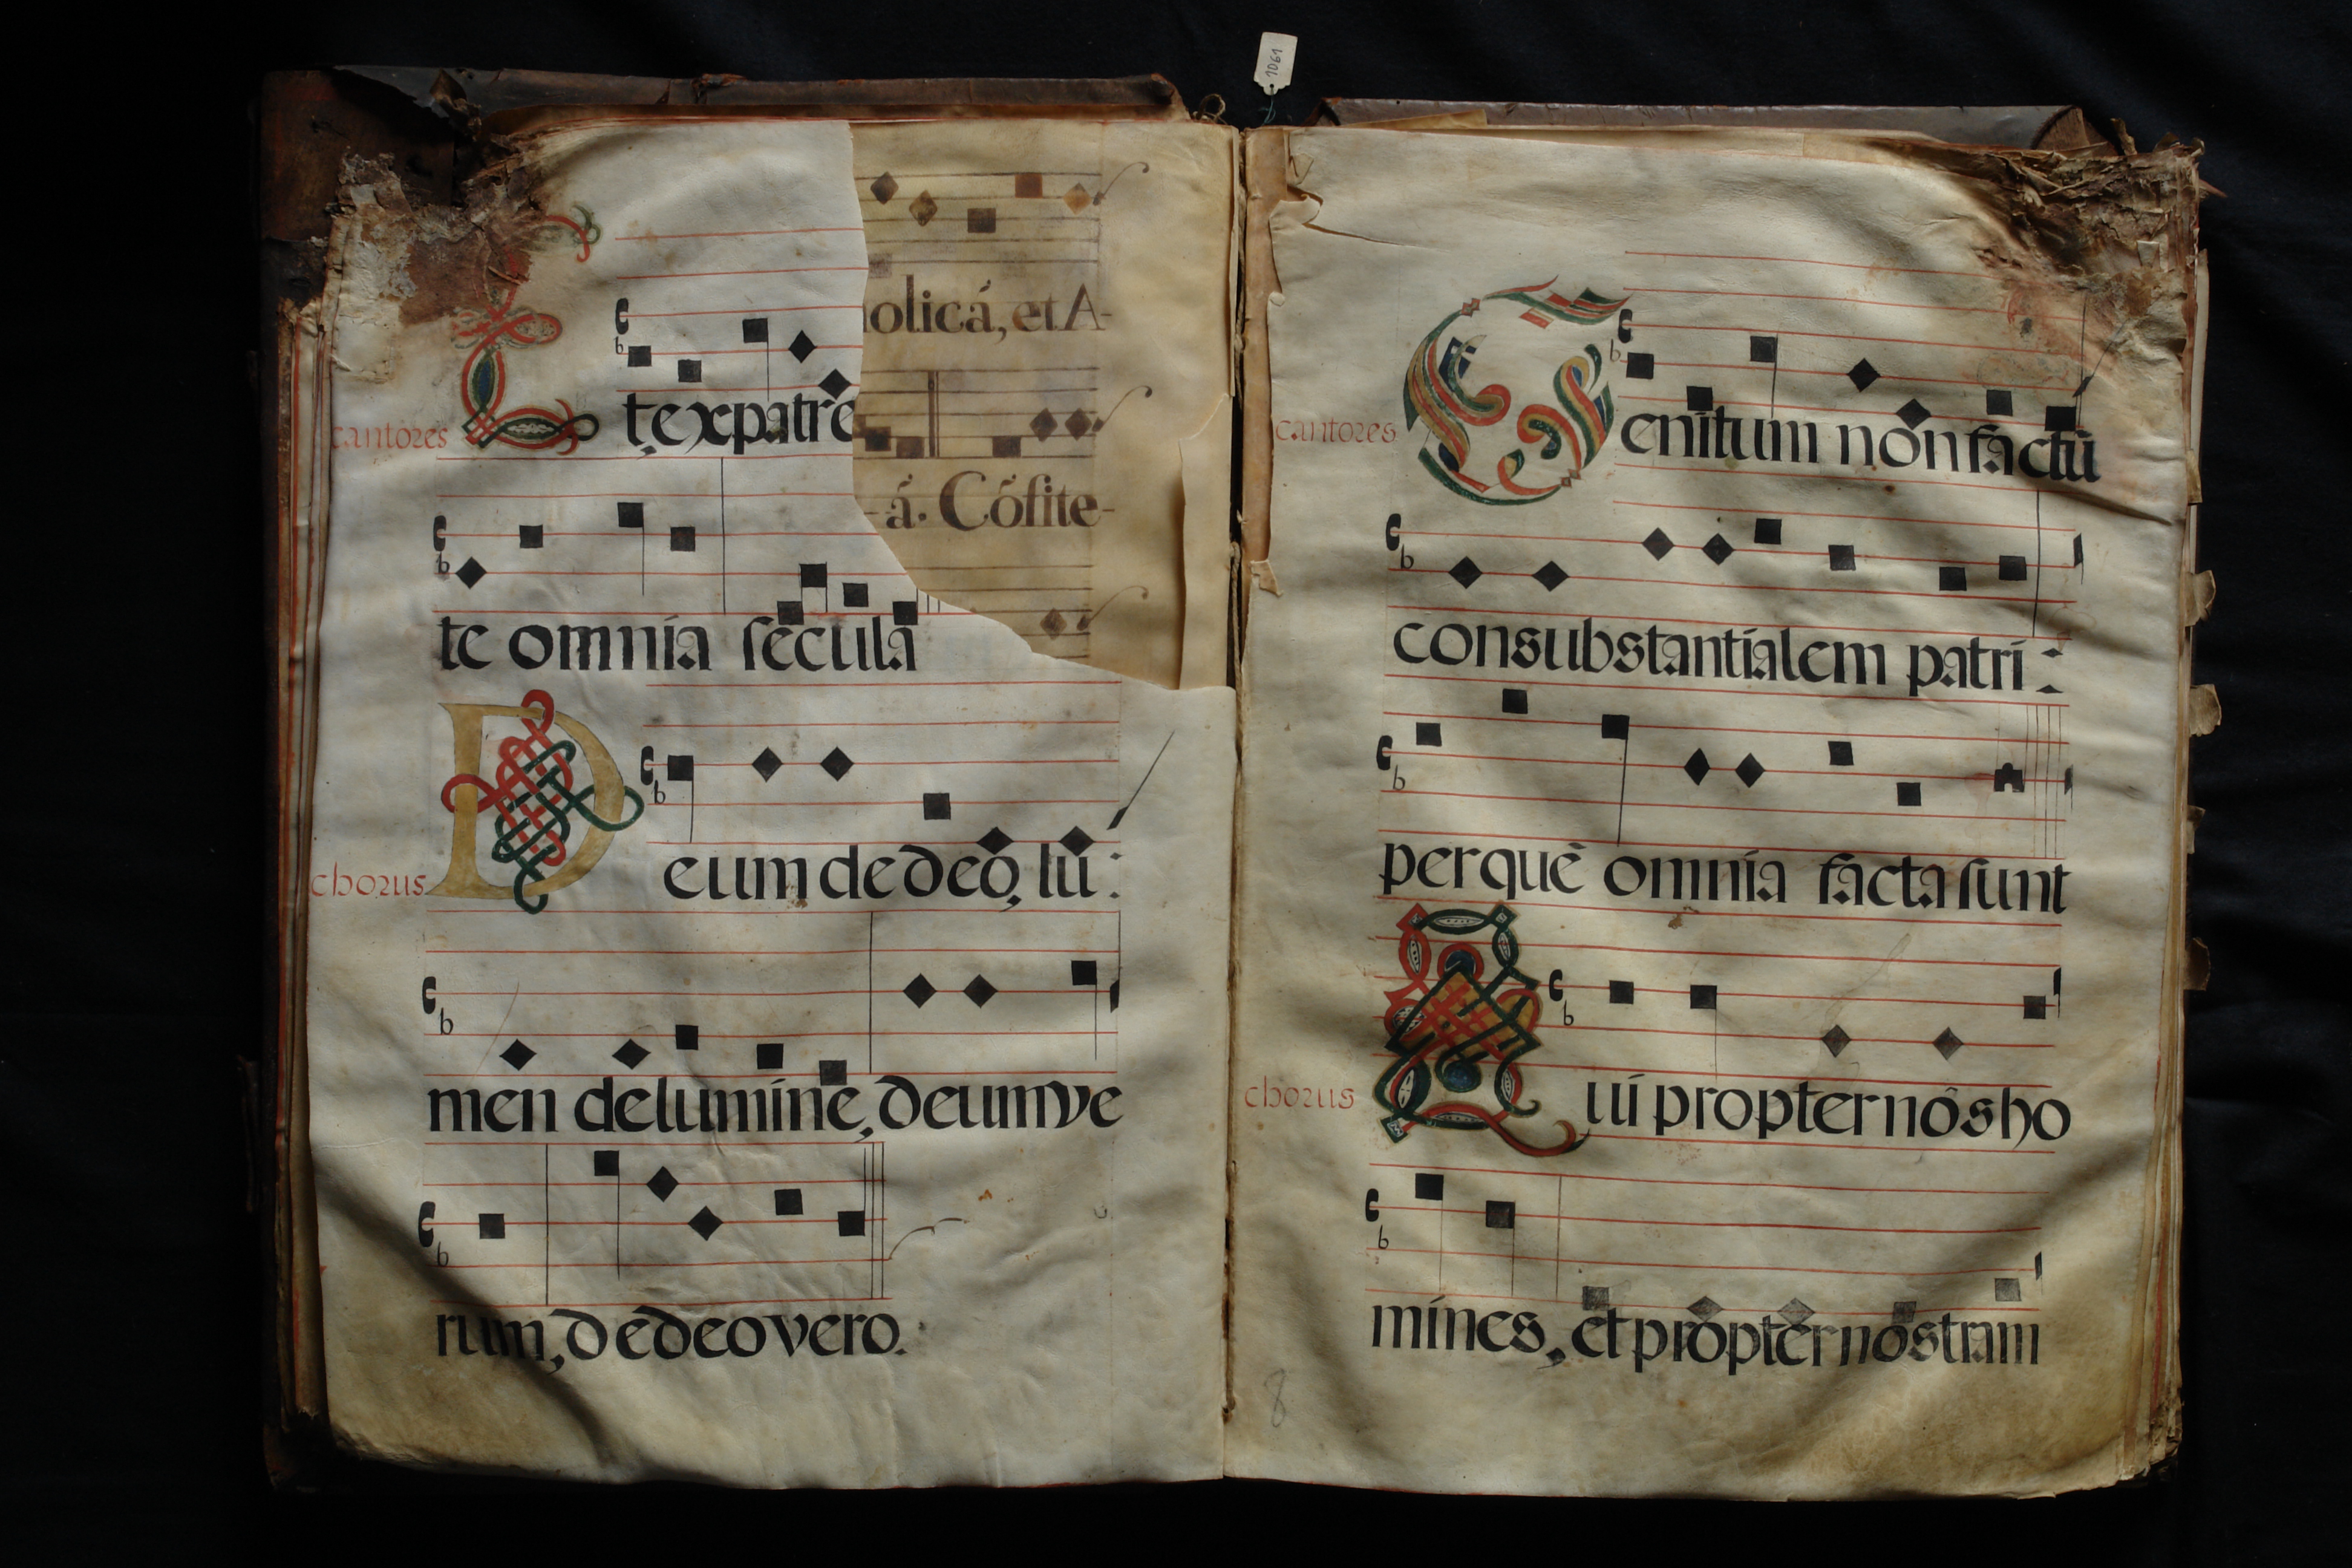 1061
cantores
Et ex patre
holicá, et A-
te omnia secula
-á. Cósite-
chorus
Deum de deo, lū:
men de lumine, deum ve
rum, de deo vero.
cantores
Genitum non factū
consubstantialem patri:
per quē omnia facta sunt
chorus
Qui propter nos ho
mines, et propter nostram
8